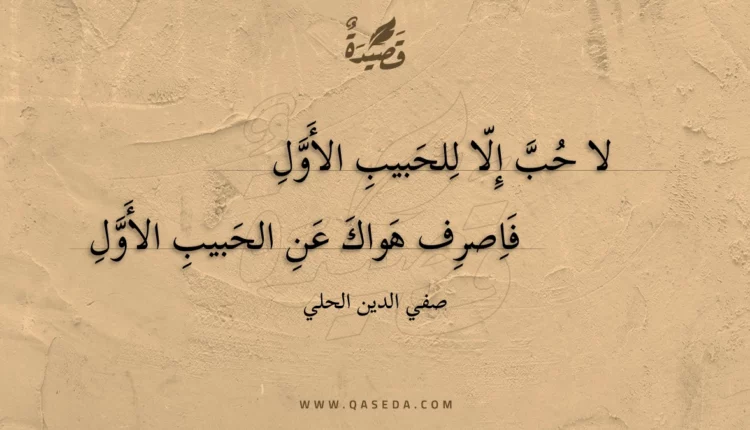 قَصِيدَةٌ
لا حُبَّ إِلّا لِلحَبيبِ الأَوَّلِ
فَاِصرِف هَواكَ عَنِ الحَبيبِ الأَوَّلِ
صفي الدين الحلي
WWW.QASEDA.COM